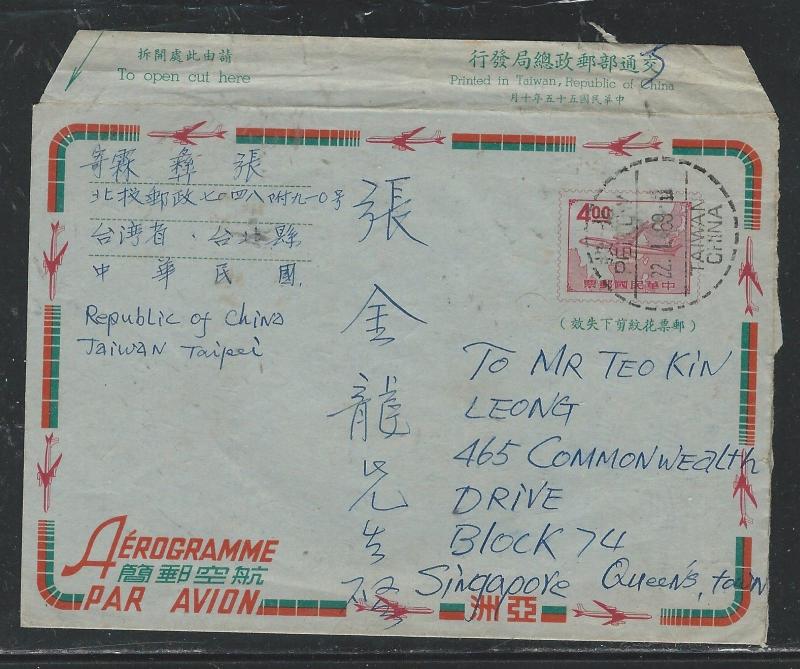 請由此處開拆
To open cut here
交通部郵政總局發行
Printed in Taiwan, Republic of China
中華民國五十五年十月
張 彝 霖 寄
北投郵政七〇四八附九一〇号
台湾省．台北縣
中華民國.
Republic of China
Taiwan Taipei
張金龍先生啓
4.00
中華民國郵票
TAIWAN
CHINA
(郵票花紋剪下失效)
TO MR TEO KIN
LEONG
465 COMMONWEALTH
DRIVE
BLOCK 74
Singapore Queen's, town
AÉROGRAMME
航空郵簡
PAR AVION
亞洲